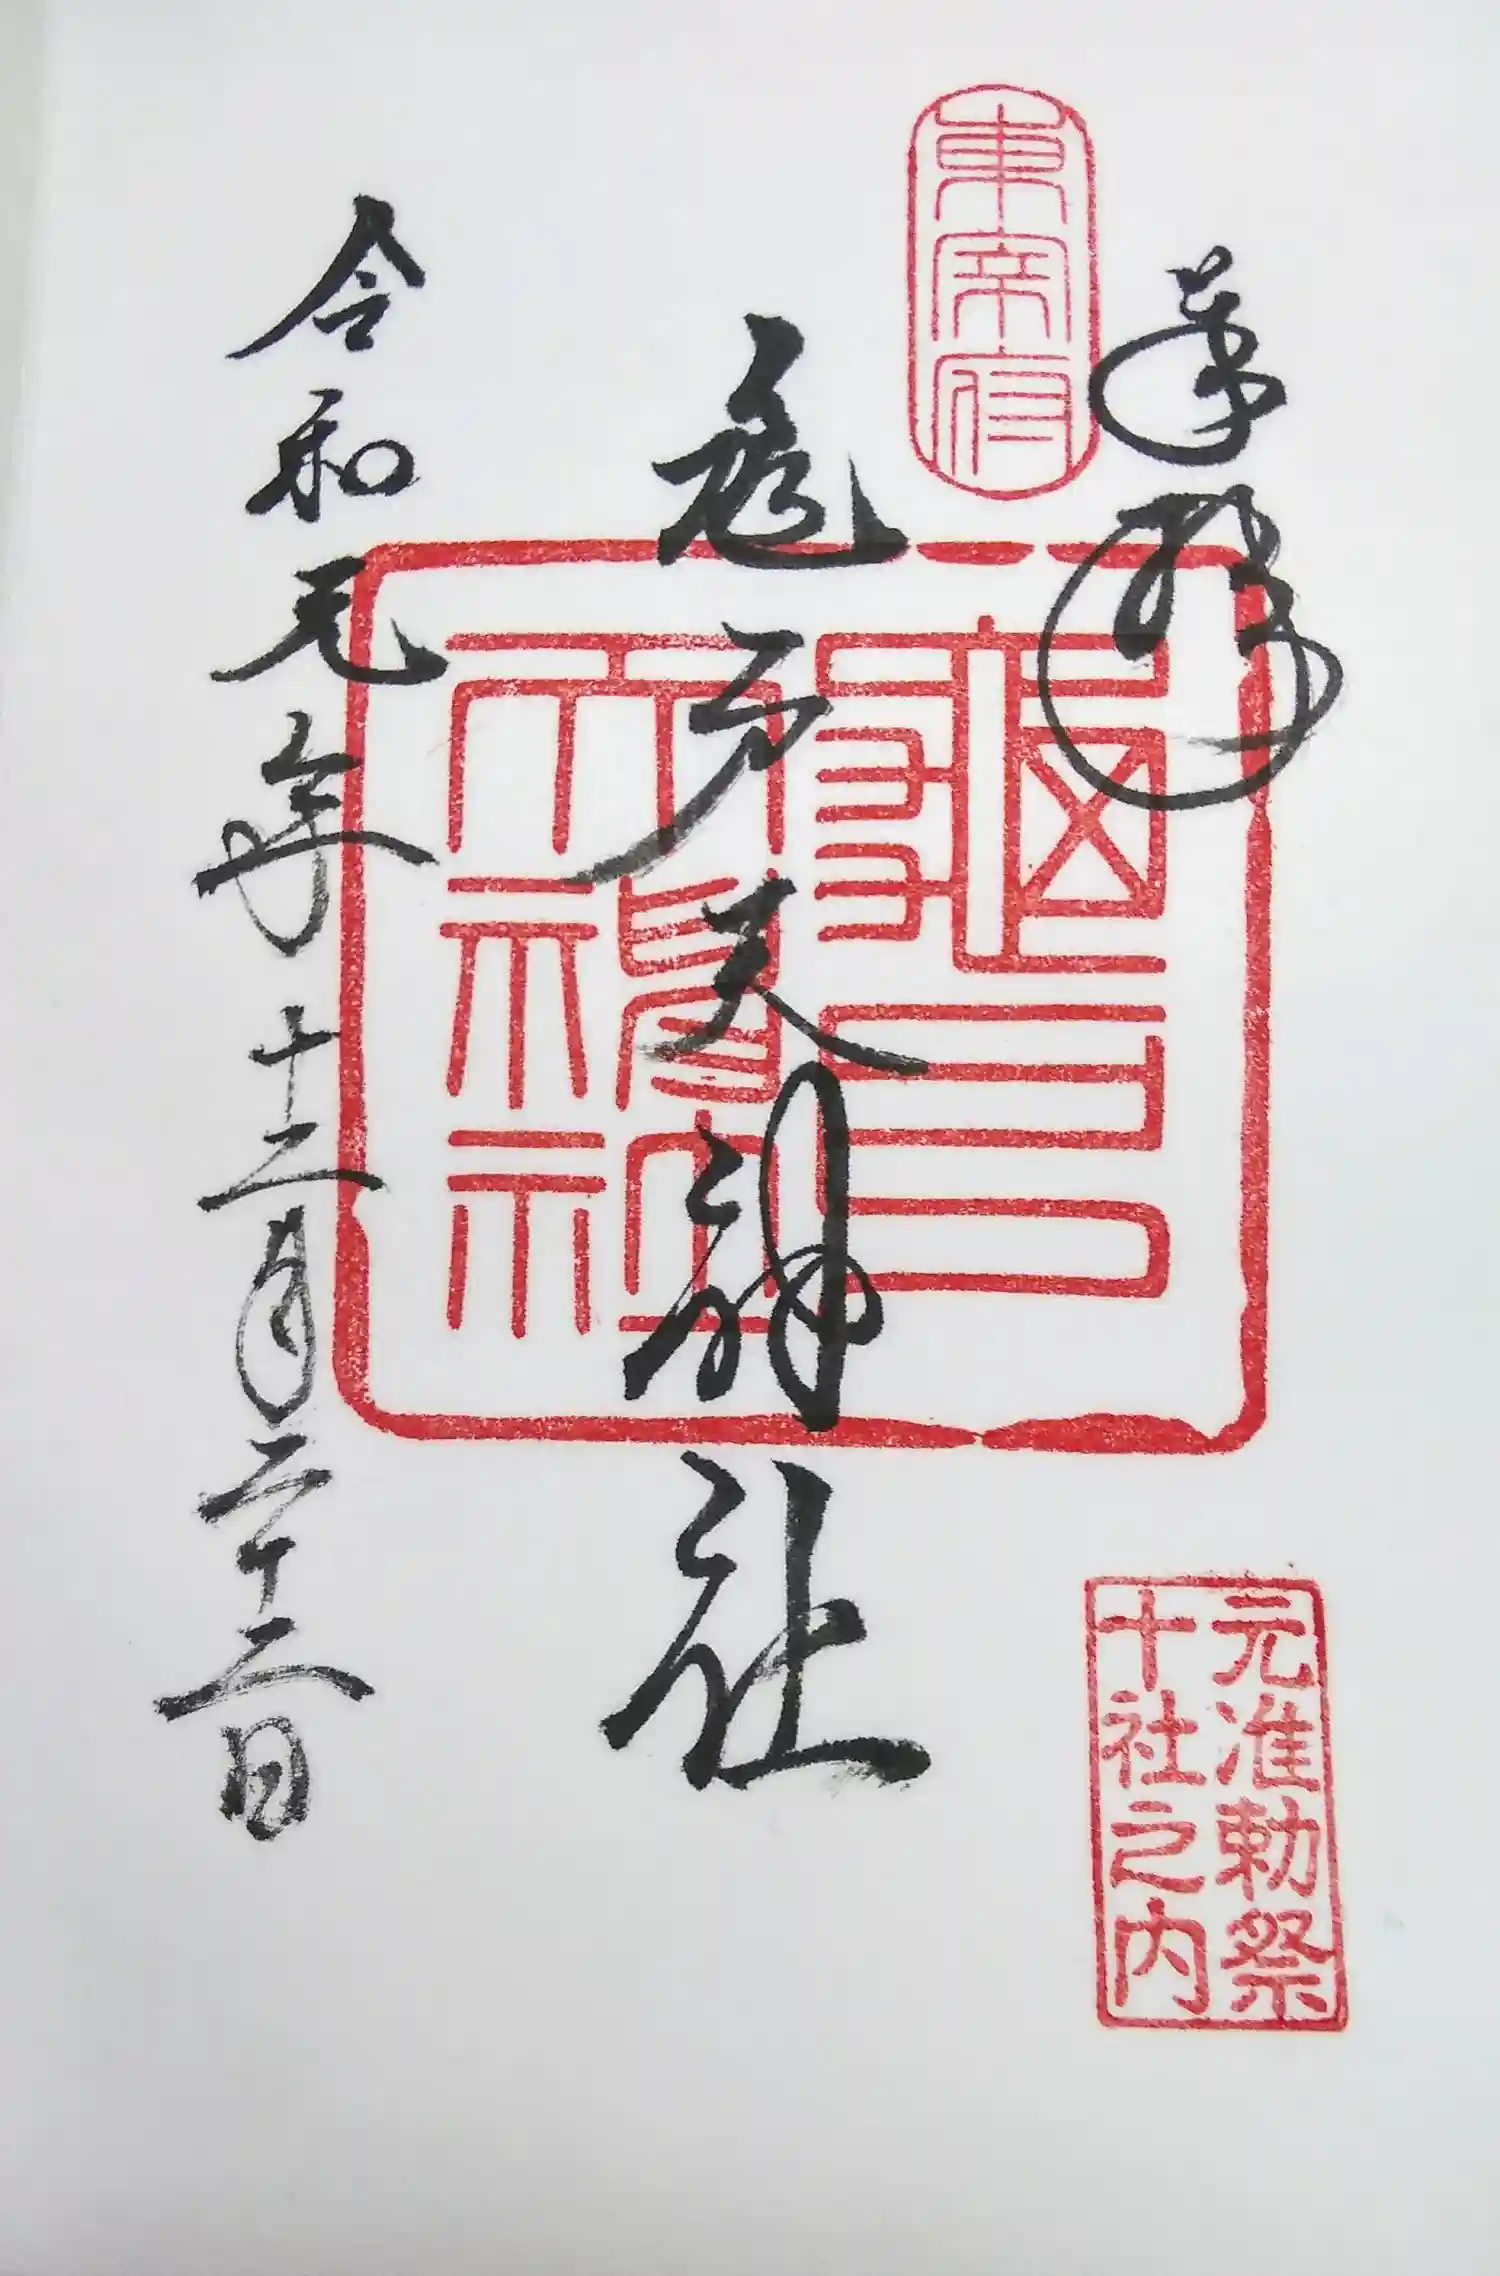 奉拝
東宰府
亀戸天神社
龜戸天神社
令和元年十二月二十二日
元准勅祭
十社之内